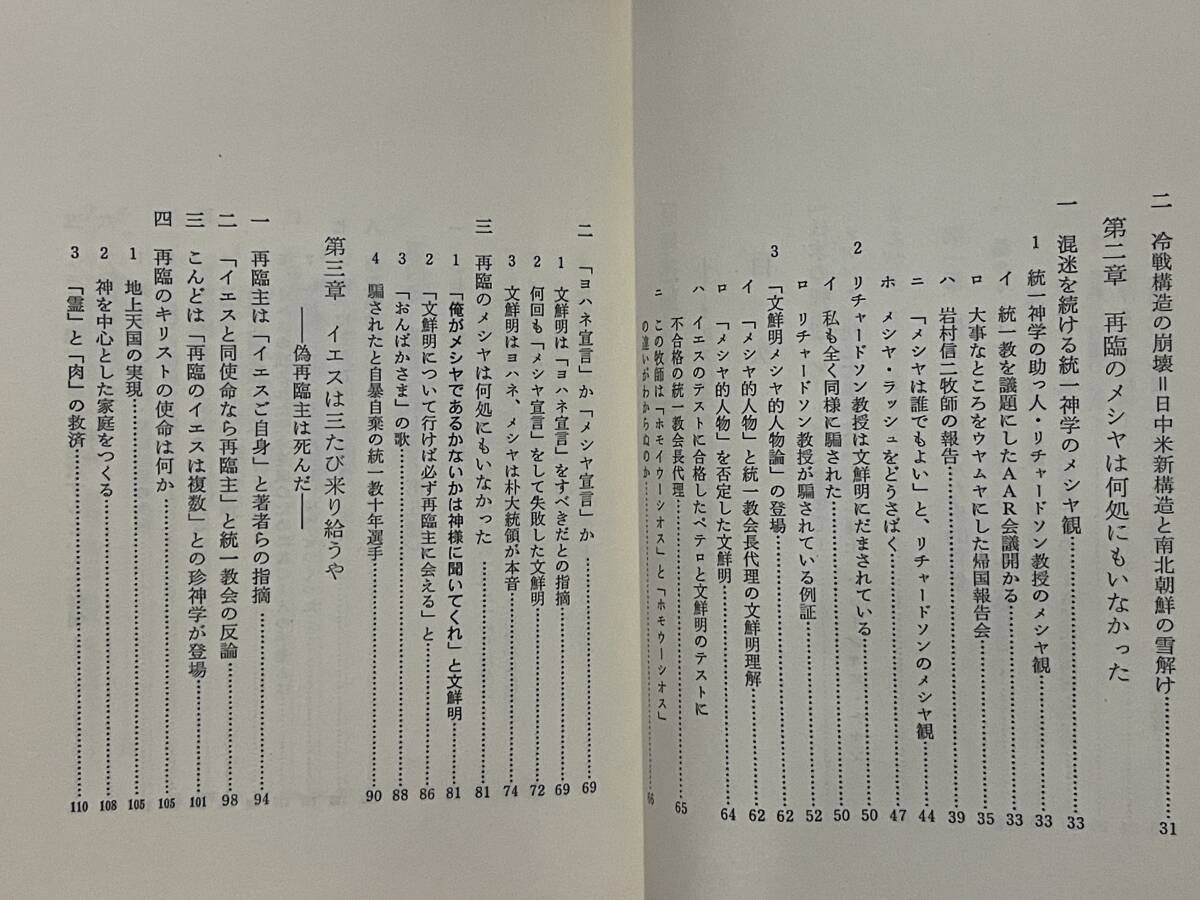 二　冷戦構造の崩壊＝日中米新構造と南北朝鮮の雪解け……31
第二章　再臨のメシヤは何処にもいなかった
一　混迷を続ける統一神学のメシヤ観……33
1　統一神学の助っ人・リチャードソン教授のメシヤ観……33
イ　統一教を議題にしたAAR会議開かる……33
ロ　大事なところをウヤムヤにした帰国報告会……35
ハ　岩村信二牧師の報告……39
ニ　「メシヤは誰でもよい」と、リチャードソンのメシヤ観……44
ホ　メシヤ・ラッシュをどうさばく……47
2　リチャードソン教授は文鮮明にだまされている……50
イ　私も全く同様に騙された……50
ロ　リチャードソン教授が騙されている例証……52
3　「文鮮明メシヤ的人物論」の登場……62
イ　「メシヤ的人物」と統一教会長代理の文鮮明理解……62
ロ　「メシヤ的人物」を否定した文鮮明……64
ハ　イエスのテストに合格したペテロと文鮮明のテストに
不合格の統一教会長代理……65
ニ　この牧師は「ホモイウーシオス」と「ホモウーシオス」
の違いがわからぬのか……66
二　「ヨハネ宣言」か「メシヤ宣言」か……69
1　文鮮明は「ヨハネ宣言」をすべきだとの指摘……69
2　何回も「メシヤ宣言」をして失敗した文鮮明……72
3　文鮮明はヨハネ、メシヤは朴大統領が本音……74
三　再臨のメシヤは何処にもいなかった……81
1　「俺がメシヤであるかないかは神様に聞いてくれ」と文鮮明……81
2　「文鮮明について行けば必ず再臨主に会える」と……86
3　「おんばかさま」の歌……88
4　騙されたと自暴自棄の統一教十年選手……90
第三章　イエスは三たび来り給うや
――偽再臨主は死んだ――
一　再臨主は「イエスご自身」と著者らの指摘……94
二　「イエスと同使命なら再臨主」と統一教会の反論……98
三　こんどは「再臨のイエスは複数」との珍神学が登場……101
四　再臨のキリストの使命は何か……105
1　地上天国の実現……105
2　神を中心とした家庭をつくる……108
3　「霊」と「肉」の救済……110